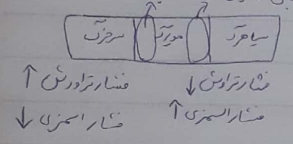 سیاهرگ مویرگ سرخرگ
فشار تراوش ↓ فشار تراوش ↑
فشار اسمزی ↑ فشار اسمزی ↓